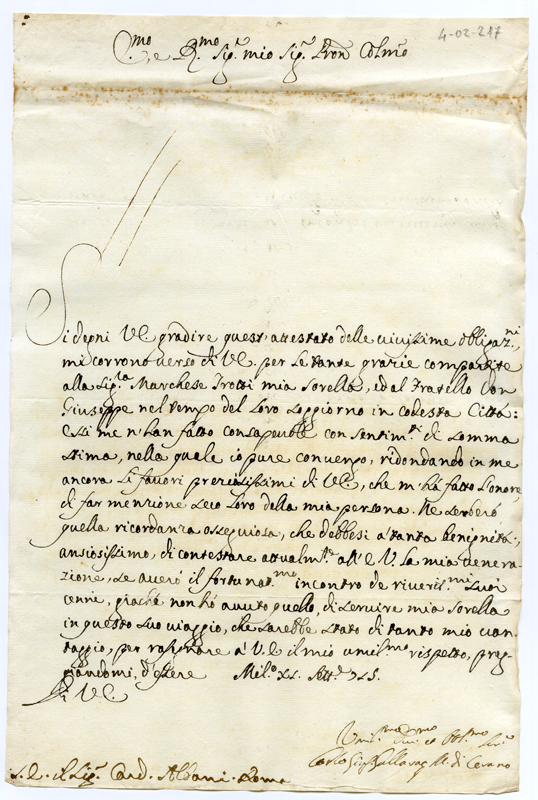 4-02-217
E.mo, e R.mo Sig.r mio Sig.r Pron Colmo
Si degni VE gradire quest'attestato delle vivissime obligaz.ni
mi corrono verso di VE. per le tante grazie compartite
alla Sig.ra Marchese Trotti mia Sorella, ed al Fratello Don
Giuseppe nel tempo del loro soggiorno in codesta Città:
Essi me n'han fatto consapevole con sentim.ti di somma
stima, nella quale io pure convengo, ridondando in me
ancora li favori preziosissimi di VE, che m'hà fatto l'onore
di far menzione seco loro della mia persona. Ne serberò
quella ricordanza ossequiosa, che debbesi à tanta benignità,
ansiosissimo, di contestare attualm.te all'E V. la mia venera-
zione, se averò il fortunat.mo incontro de riverit.mi suoi
cenni, giache non hò avuto quello, di servire mia Sorella
in questo suo viaggio, che sarebbe stato di tanto mio van-
taggio, per rassegnare à VE il mio umil.mo rispetto, preg-
giandomi, d'essere Mil.o XX. Sett.e 725.
Di VE.
Umil.mo Dev.mo et Obl.mo Ser.e
Carlo di Cerano
S. E. il Sig.r Card. Albani. Roma